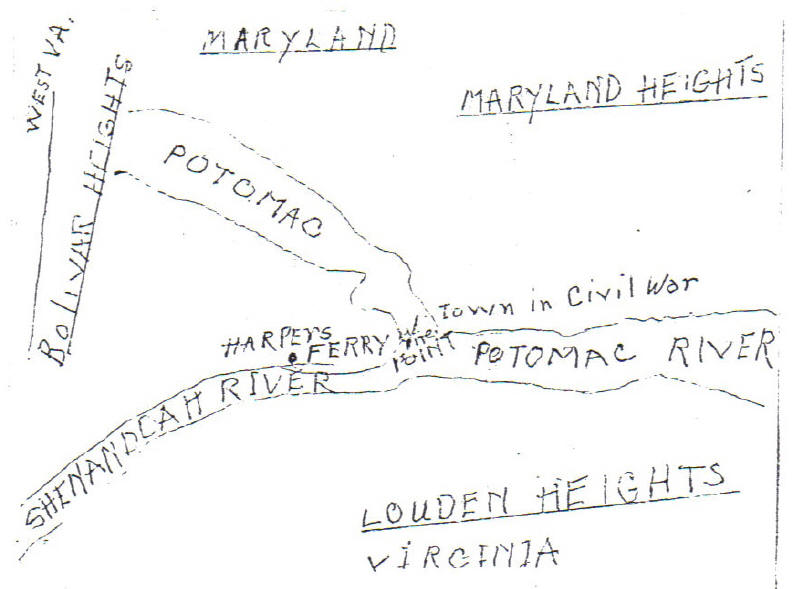 MARYLAND
WEST VA.
MARYLAND HEIGHTS
BOLIVAR HEIGHTS
POTOMAC
Town in Civil War
The
POINT
HARPERS
FERRY
POTOMAC RIVER
SHENANDOAH RIVER
LOUDEN HEIGHTS
VIRGINIA